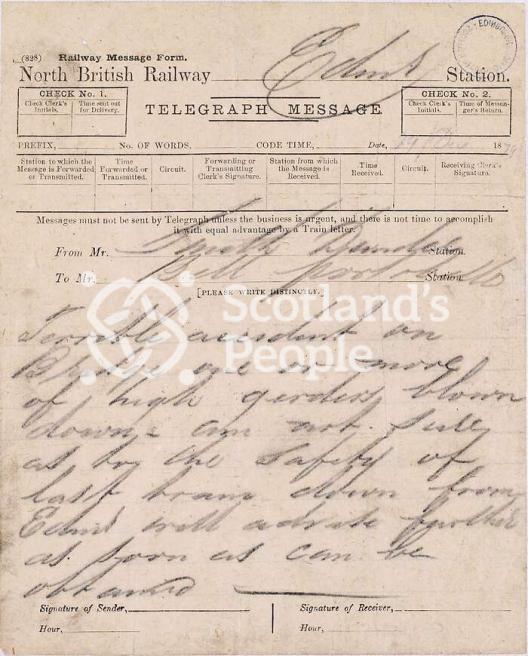 (828) Railway Message Form.
North British Railway Edinr Station.
CHECK No. 1.
Check Clerk's Initials. Time sent out for Delivery.
TELEGRAPH MESSAGE
CHECK No. 2.
Check Clerk's Initials. Time of Messenger's Return.
PREFIX, No. OF WORDS. CODE TIME, Date, 18
Station to which the Message is Forwarded or Transmitted. Time Forwarded or Transmitted. Circuit. Forwarding or Transmitting Clerk's Signature. Station from which the Message is Received. Time Received. Circuit. Receiving Clerk's Signature.
Messages must not be sent by Telegraph unless the business is urgent, and there is not time to accomplish
it with equal advantage by a Train letter.
From Mr. Smith Dundee Station.
To Mr. Bell Portobello Station.
[PLEASE WRITE DISTINCTLY.
Scotland's
People
Terrible accident on
Bridge one or more
of high girders blown
down - am not sure
as to the safety of
last train down from
Edinr will advise further
as soon as can be
obtained
Signature of Sender, Signature of Receiver,
Hour, Hour,